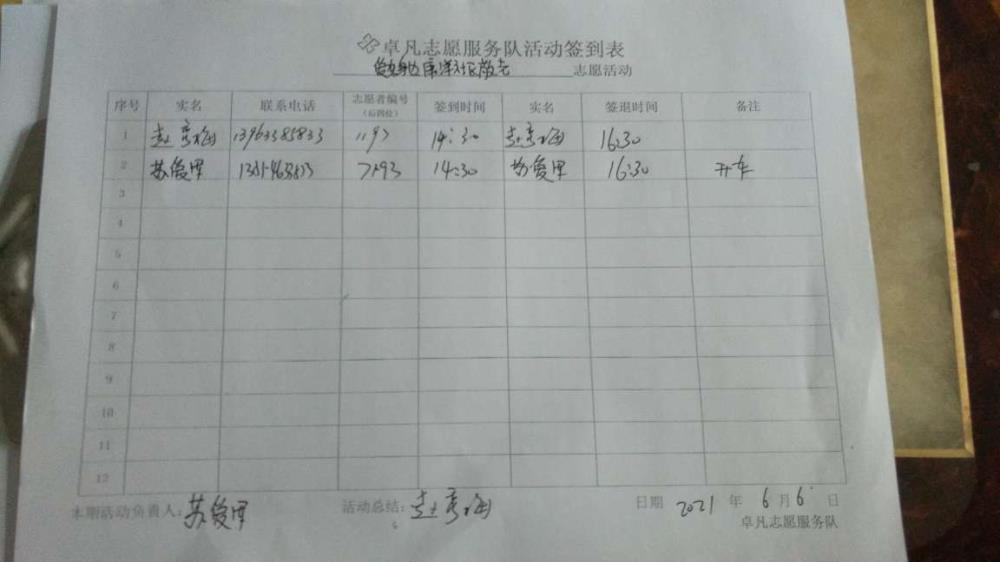 卓凡志愿服务队活动签到表
志愿活动
序号 实名 联系电话 志愿者编号（后四位） 签到时间 实名 签退时间 备注
1 赵秀梅 13963385833 1197 14:30 赵秀梅 16:30
2 苏爱军 14:30 苏爱军 16:30 开车
3
4
5
6
7
8
9
10
11
12
本期活动负责人：苏爱军 活动总结：赵秀梅 日期 2021 年 6 月 6 日
卓凡志愿服务队